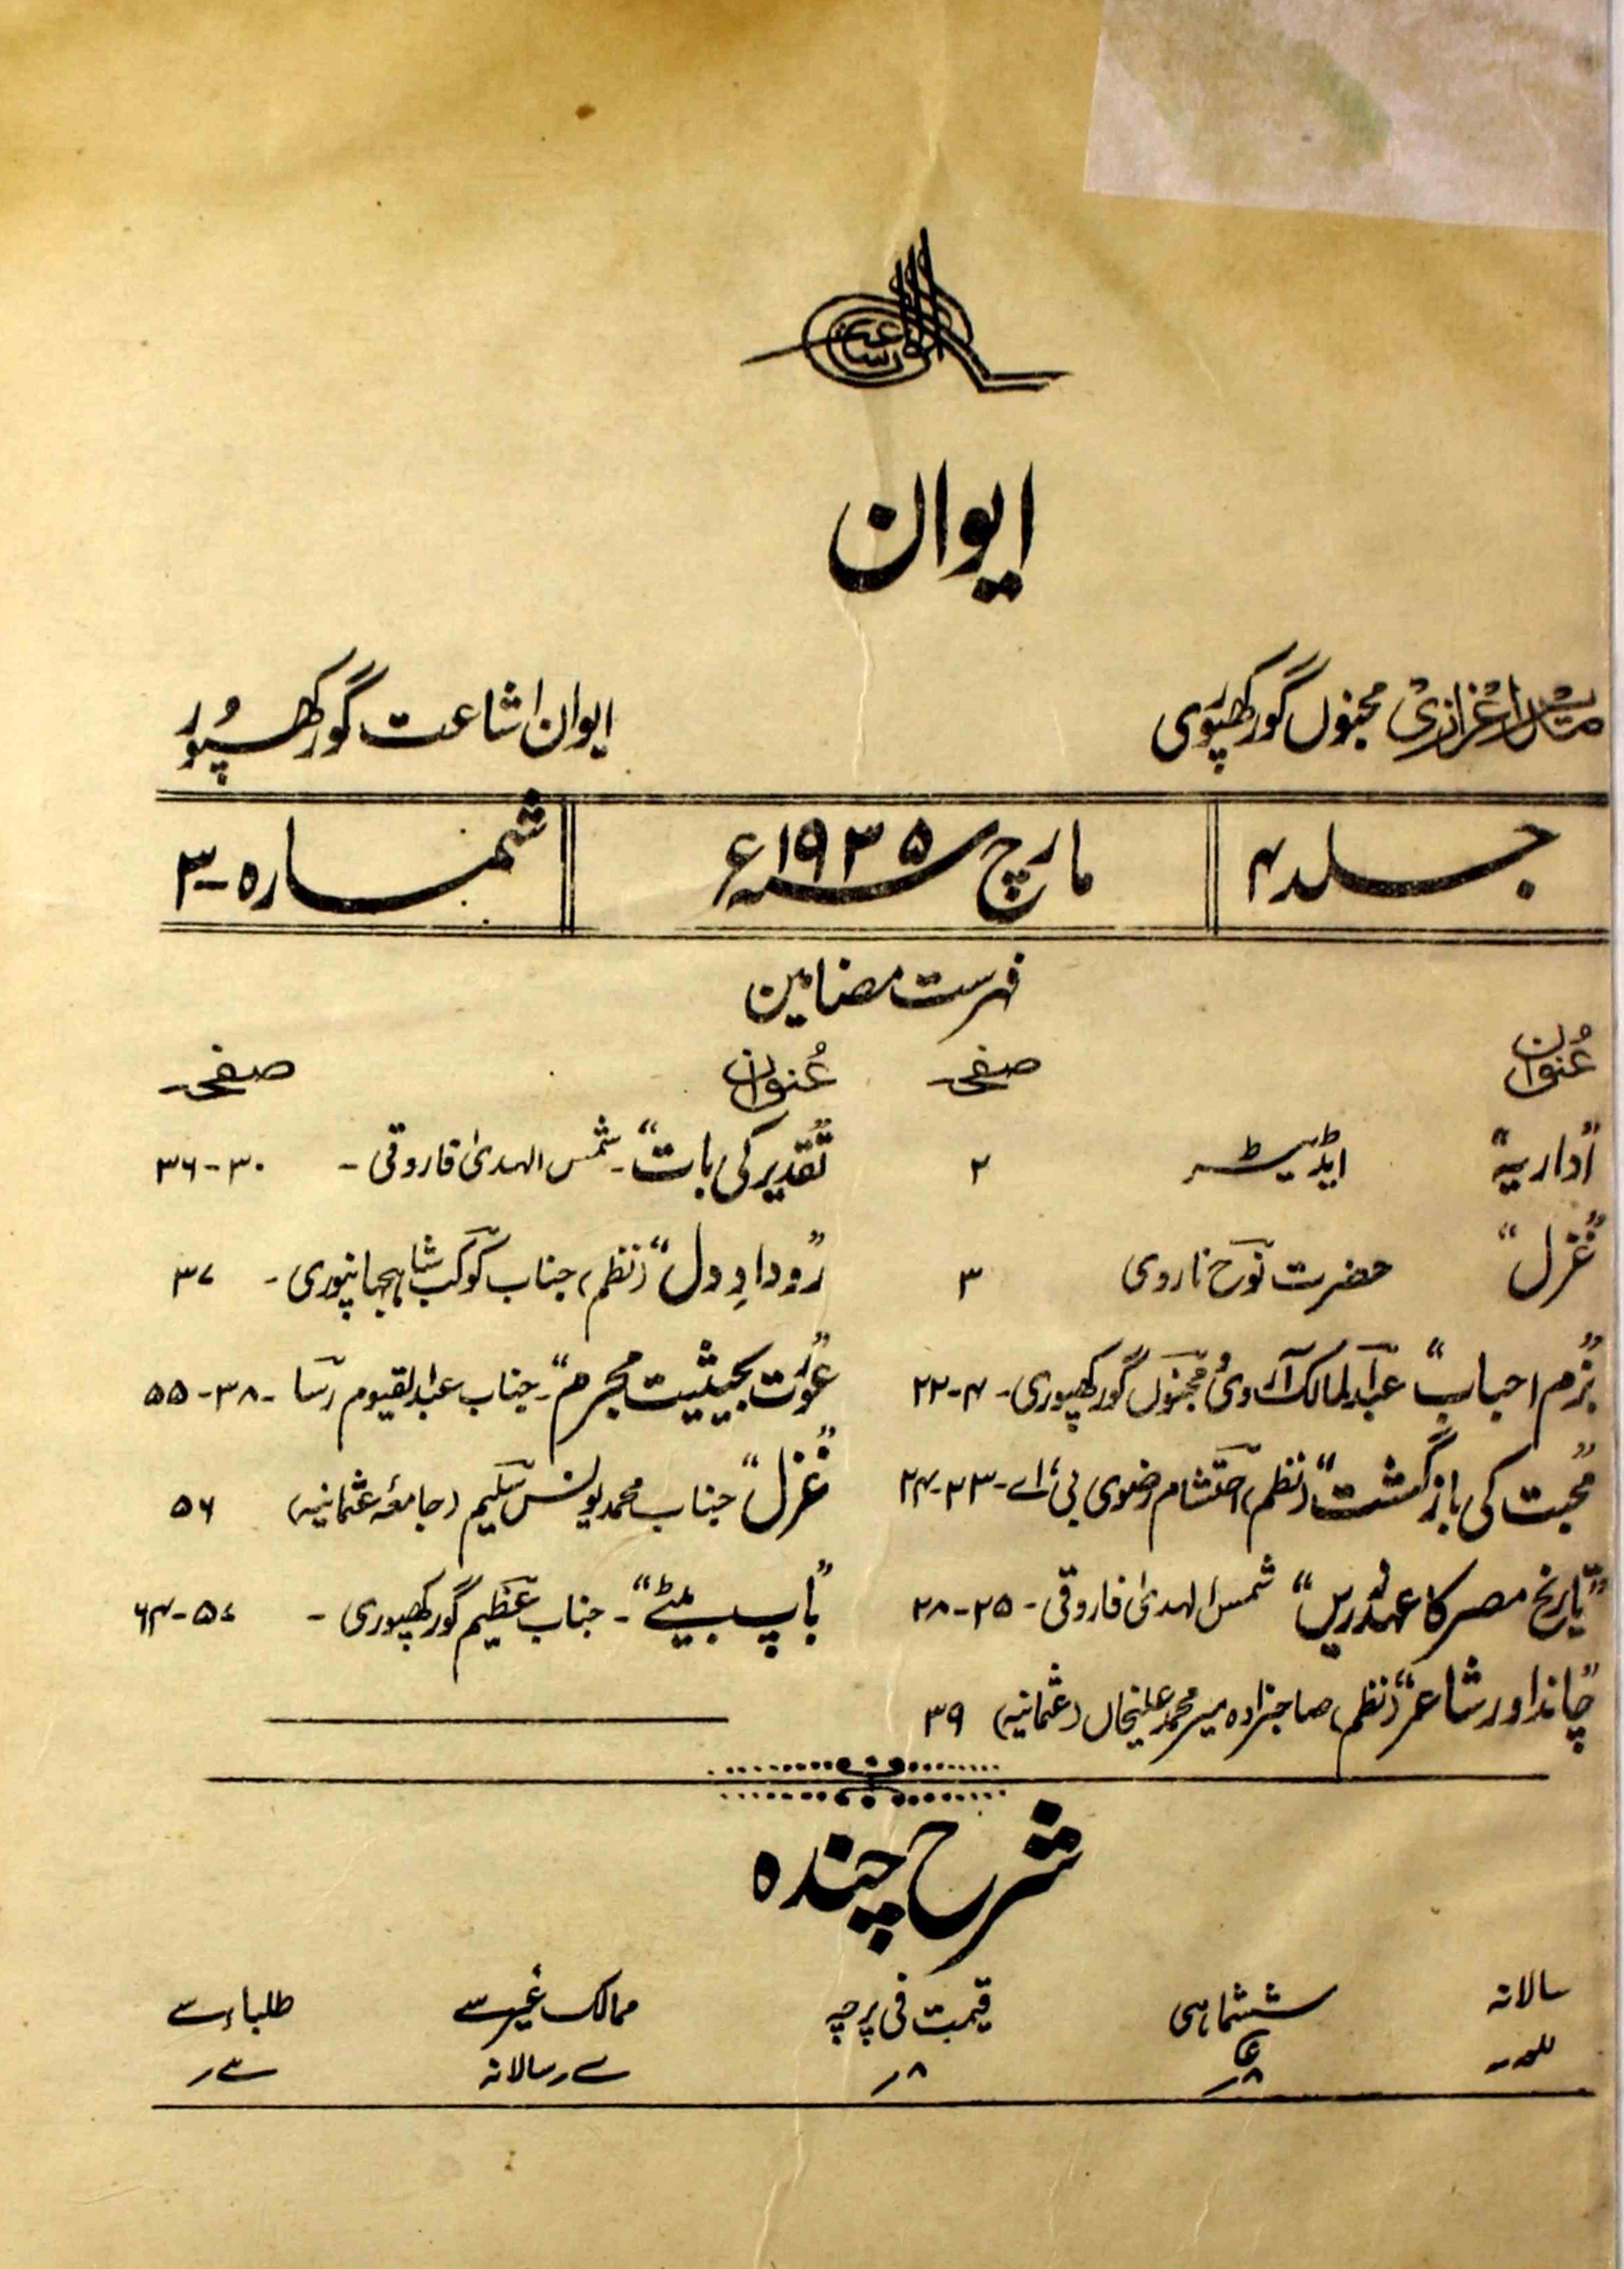 ایوان
مدیر اعزازی مجنوں گورکھپوری
ایوان اشاعت گورکھپور
جلد ۴
مارچ ۱۹۳۵ء
شمارہ - ۳
فہرست مضامین
عنوان صفحہ
”اداریہ“ ایڈیٹر ۲
”غزل“ حضرت نوح ناروی ۳
”بزم احباب“ عبدالمالک آروی مجنوں گورکھپوری - ۴-۲۲
”محبت کی بازگشت“ (نظم) احتشام رضوی بی، اے - ۲۳-۲۴
”تاریخ مصر کا عہد زریں“ شمس الہدیٰ فاروقی - ۲۵-۲۸
”چاند اور شاعر“ (نظم) صاحبزادہ میر محمد علیخاں (عثمانیہ) ۳۹
عنوان صفحہ
”تقدیر کی بات“ - شمس الہدیٰ فاروقی - ۳۰-۳۶
”رودادِ دل“ (نظم) جناب کوکب شاہجہانپوری - ۳۷
”عورت بحیثیت مجرم“ - جناب عبدالقیوم رسا - ۳۸-۵۵
”غزل“ جناب محمد یونس سلیم (جامعۂ عثمانیہ) ۵۶
”باپ بیٹے“ - جناب عظیم گورکھپوری - ۵۷-۶۴
شرح چندہ
سالانہ ششماہی قیمت فی پرچہ ممالک غیر سے طلباء سے
۸؍ سالانہ